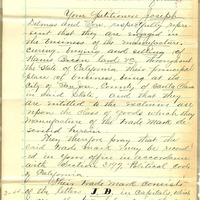 Your Petitioners Joseph
Delmas and Son, respectfully repre-
sent that they are engaged in
the business of the manufacture,
curing buying and selling of
Hams Bacon Lard &c. throughout
the State of California, their principal
place of business being at the
City of San Jose, County of Santa Clara
in said State, and that they
are entitled to the exclusive use
upon the class of goods which they
manufacture of the Trade Mark de-
scribed herein.
They therefore pray that the
said Trade Mark may be record-
ed in your office in accordance
with Section 3197, Political Code
of California.
Their Trade Mark consists
of the letters J. D. in Capitals, which